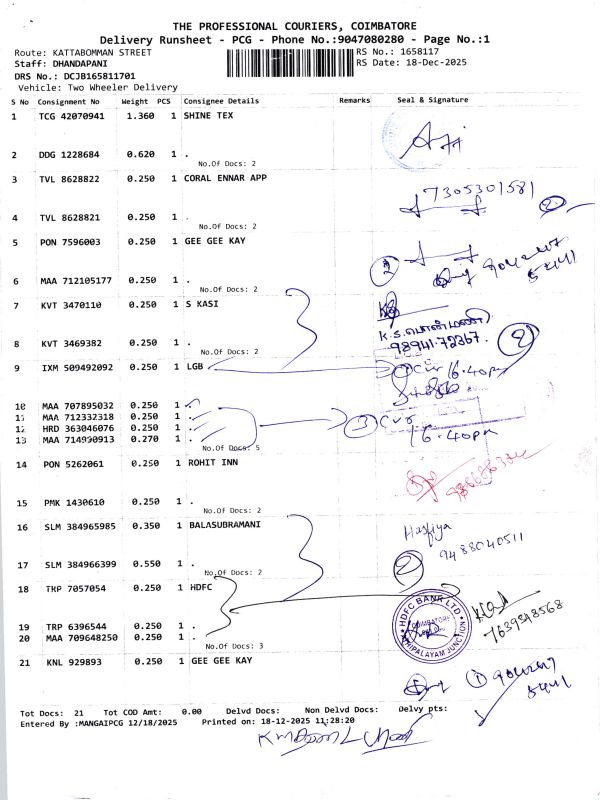 THE PROFESSIONAL COURIERS, COIMBATORE
Delivery Runsheet - PCG - Phone No.:9047080280 - Page No.:1
Route: KATTABOMMAN STREET RS No.: 1658117
Staff: DHANDAPANI RS Date: 18-Dec-2025
DRS No.: DCJB165811701
Vehicle: Two Wheeler Delivery
S No Consignment No Weight PCS Consignee Details Remarks Seal & Signature
1 TCG 42070941 1.360 1 SHINE TEX
2 DDG 1228684 0.620 1 .
No.Of Docs: 2
3 TVL 8628822 0.250 1 CORAL ENNAR APP
7305301581
4 TVL 8628821 0.250 1 .
No.Of Docs: 2
5 PON 7596003 0.250 1 GEE GEE KAY
2
6 MAA 712105177 0.250 1 .
No.Of Docs: 2
7 KVT 3470110 0.250 1 S KASI
K.S.பொன்மணி
8 KVT 3469382 0.250 1 .
98941-72367. 2
No.Of Docs: 2
9 IXM 509492092 0.250 1 LGB
16.40pm
10 MAA 707895032 0.250 1 .
11 MAA 712332318 0.250 1 .
12 HRD 363046076 0.250 1 .
13 MAA 714990913 0.270 1 .
16.40pm
No.Of Docs: 5
14 PON 5262061 0.250 1 ROHIT INN
15 PMK 1430610 0.250 1 .
No.Of Docs: 2
16 SLM 384965985 0.350 1 BALASUBRAMANI
9488040511
17 SLM 384966399 0.550 1 .
2
No.Of Docs: 2
18 TRP 7057054 0.250 1 HDFC
HDFC BANK LTD
COIMBATORE
19 TRP 6396544 0.250 1 .
20 MAA 709648250 0.250 1 .
No.Of Docs: 3
21 KNL 929893 0.250 1 GEE GEE KAY
1
Tot Docs: 21 Tot COD Amt: 0.00 Delvd Docs: Non Delvd Docs: Delvy pts:
Entered By :MANGAIPCG 12/18/2025 Printed on: 18-12-2025 11:28:20